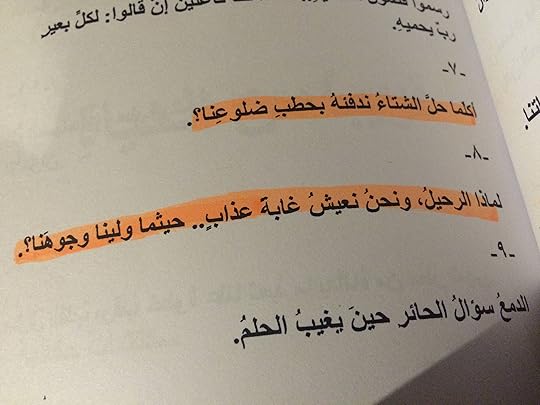 رسموا
إن قالوا: لكلِّ بعير
ربّ يحميهِ.
-٧-
أكلما حلَّ الشتاءُ ندفئهُ بحطبِ ضلوعِنا؟.
-٨-
لماذا الرحيلُ، ونحنُ نعيشُ غابة عذابٍ.. حيثما ولينا وجوهَنا؟.
-٩-
الدمعُ سؤالُ الحائر حينَ يغيبُ الحلمُ.